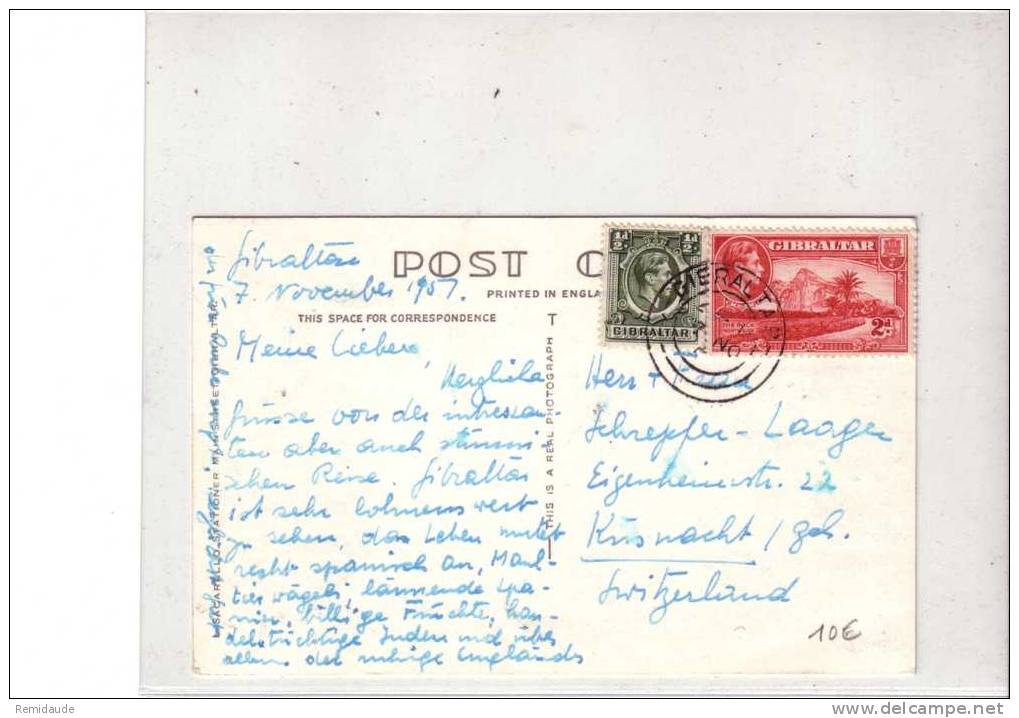 Gibraltar
7. November 1951.
POST C
PRINTED IN ENGLA
THIS SPACE FOR CORRESPONDENCE
Meine Lieben,
Herzliche
Grüsse von der interessan-
ten aber auch stürmi-
schen Reise. Gibraltar
ist sehr lohnenswert
zu sehen, das Leben mutet
recht spanisch an, Maul-
tierwägeli, lärmende Spa-
nier, billige Früchte, han-
deltüchtige Inder und über
allem der ruhige Engländer
THIS IS A REAL PHOTOGRAPH T
SACARELLO, STATIONER MAIN STREET, GIBRALTAR
½d ½d
GIBRALTAR
GIBRALTAR
2d
GIBRALTAR
NO
Herr + Frau
Schrepfer-Laager
Eigenheimstr. 22
Küsnacht / Zch.
Switzerland
10€
Remidaude
www.delcampe.net